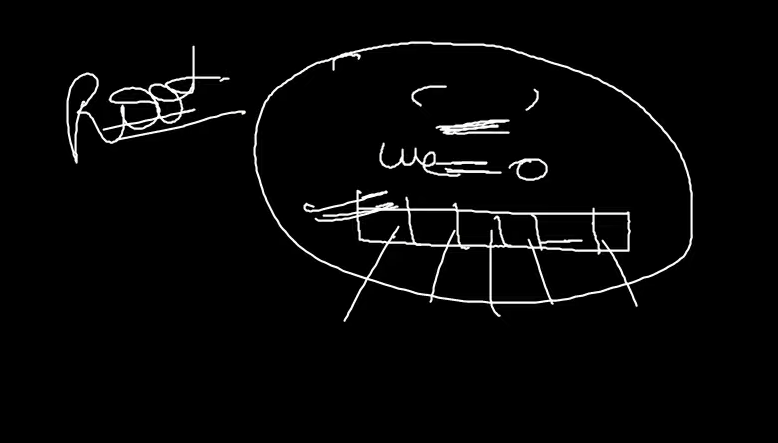 Root
we = 0